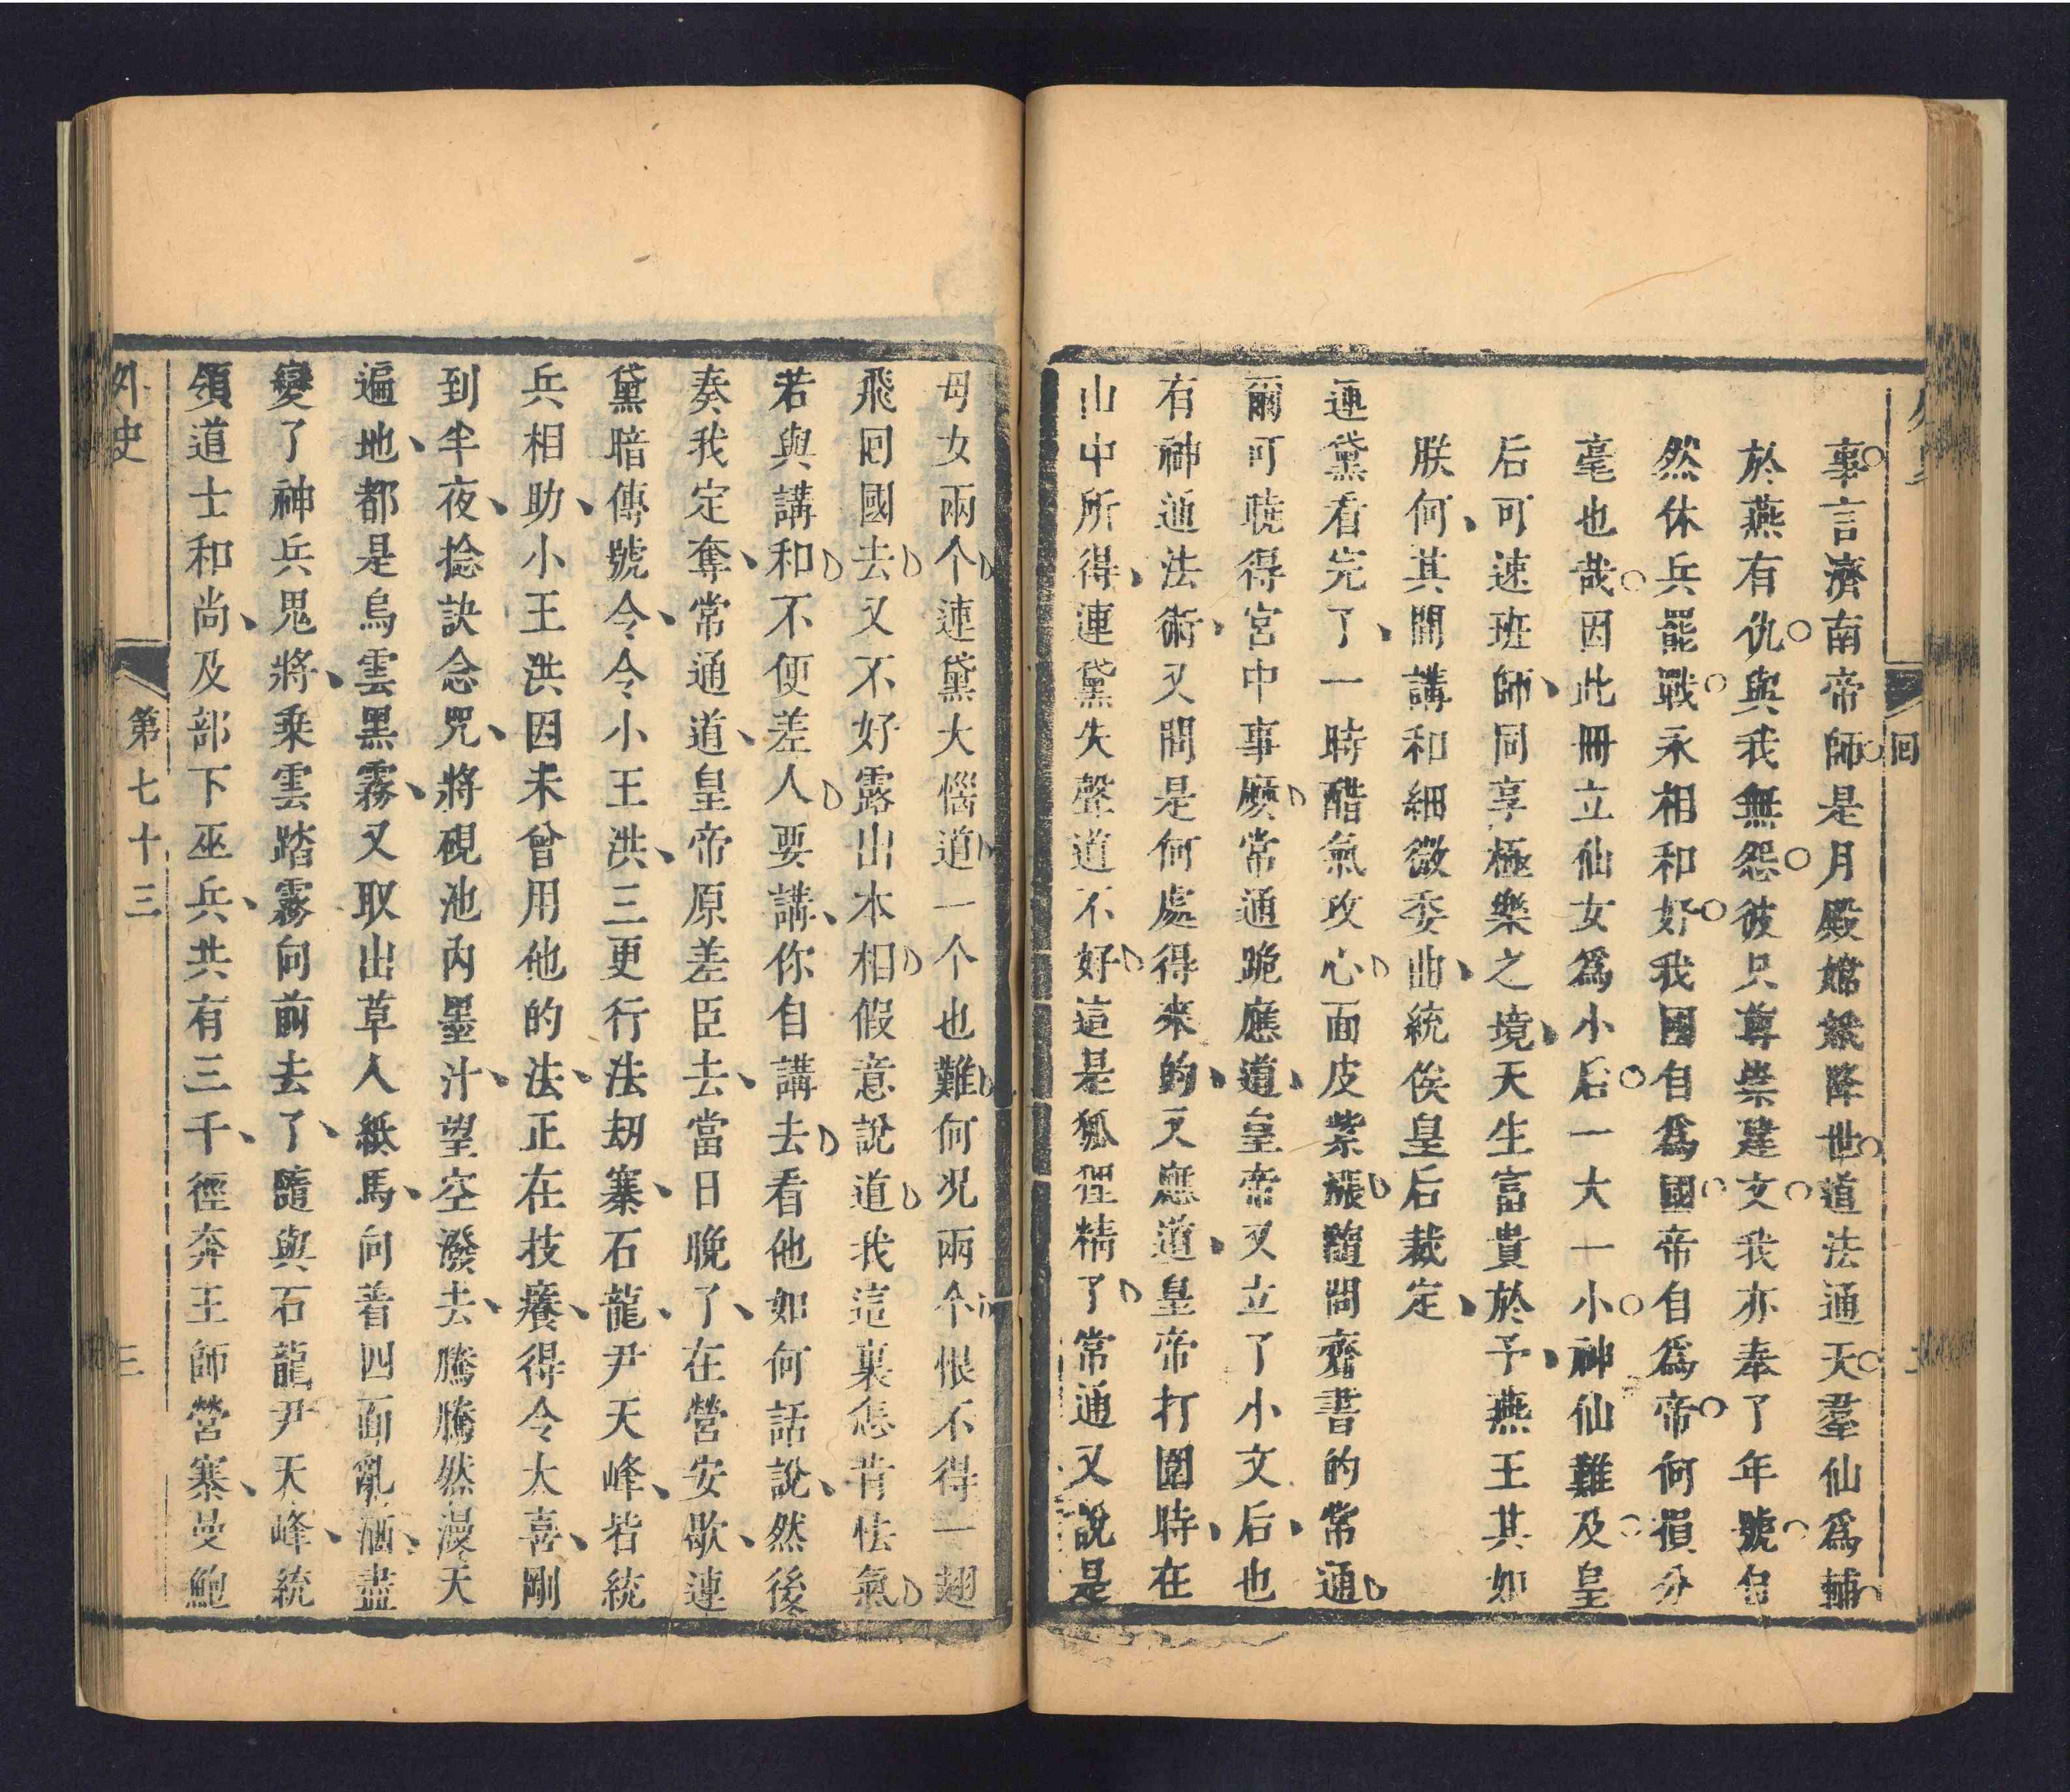 回
事言濟南帝師是月殿嫦娥降世道法通天羣仙爲輔
於燕有仇與我無怨彼只尊崇建文我亦奉了年號自
然休兵罷戰永相和好我國自爲國帝自爲帝何損分
毫也哉因此冊立仙女爲小后一大一小神仙難及皇
后可速班師同享極樂之境天生富貴於予燕王其如
朕何其間講和細微委曲統俟皇后裁定
連黛看完了一時醋氣攻心面皮紫漲隨問齎書的常通
爾可曉得宮中事麽常通跪應道皇帝又立了小文后也
有神通法術又問是何處得來的又應道皇帝打圍時在
山中所得連黛失聲道不好這是狐狸精了常通又說是
母女兩个連黛大惱道一个也難何况兩个恨不得一翅
飛囘國去又不好露出本相假意說道我這裏怎肯怯氣
若與講和不便差人要講你自講去看他如何話說然後
奏我定奪常通道皇帝原差臣去當日晚了在營安歇連
黛暗傳號令令小王洪三更行法刼寨石龍尹天峰皆統
兵相助小王洪因未曾用他的法正在技癢得令大喜剛
到半夜捻訣念咒將硯池內墨汁望空潑去騰騰然漫天
遍地都是烏雲黑霧又取出草人紙馬向着四面亂洒盡
變了神兵鬼將乘雲踏霧向前去了隨與石龍尹天峰統
領道士和尚及部下巫兵共有三千徑奔王師營寨曼鮑
外史
第七十三
三